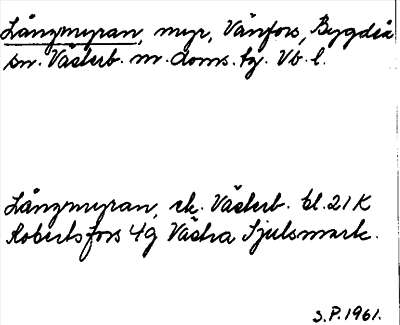 Långmyran, myr, Vänfors, Bygdeå
sn. Västerb. m. doms. tg. Vb. l.
Långmyran, ek. Västerb. bl. 21 K
Robertsfors 4g Västra Sjulsmark.
S.P. 1961.